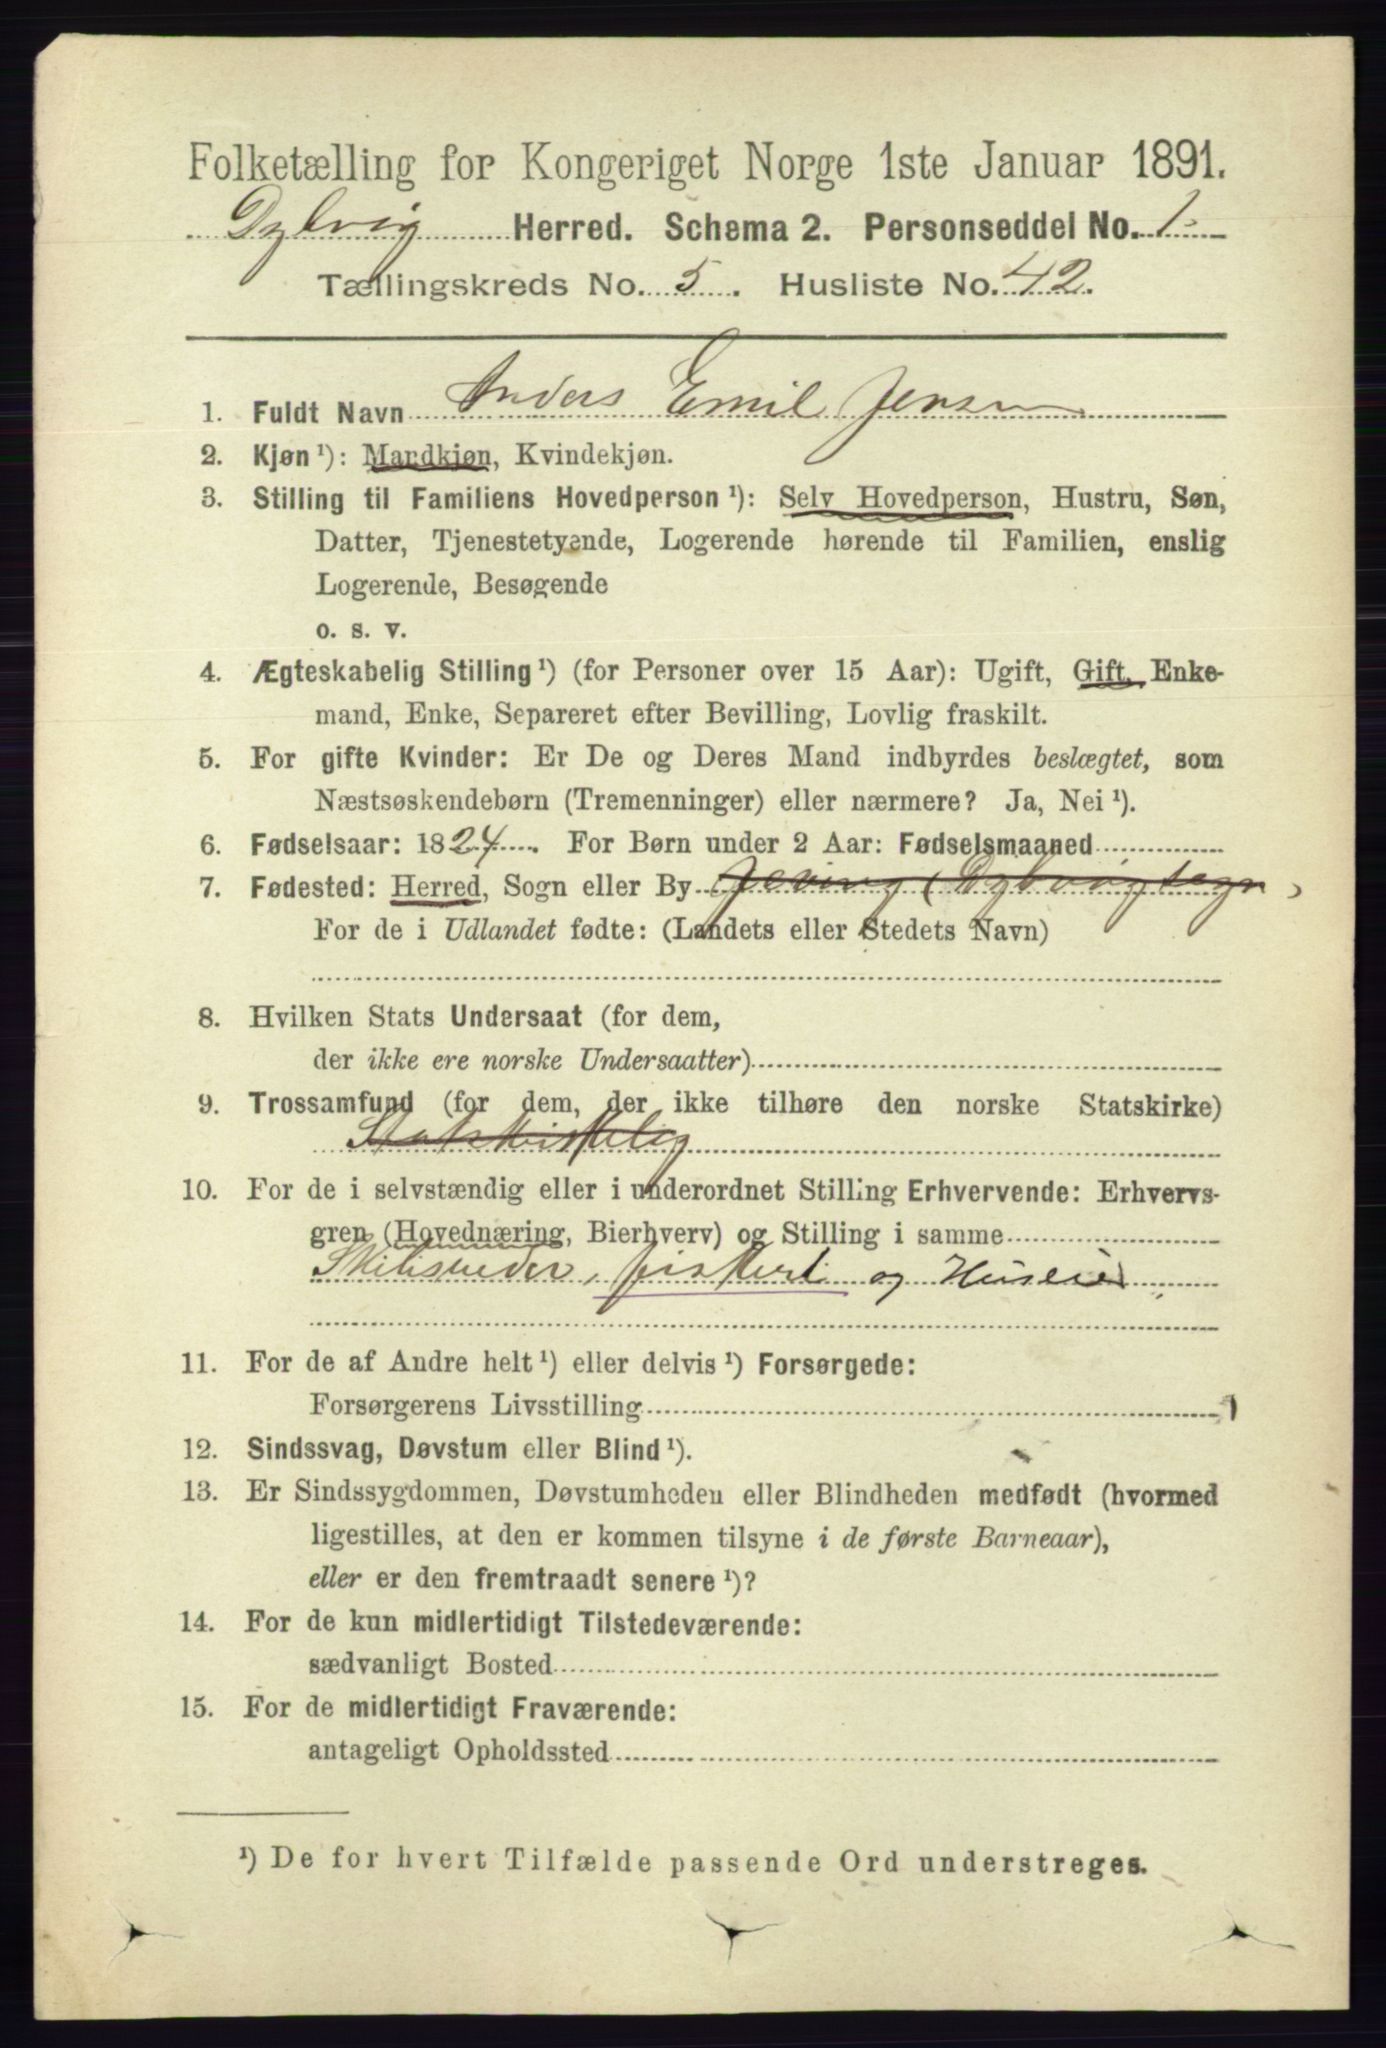 Folketælling for Kongeriget Norge 1ste Januar 1891.
Dybvig Herred. Schema 2. Personseddel No. 1.
Tællingskreds No. 5. Husliste No. 42.
1. Fuldt Navn Anders Emil Jensen
2. Kjøn ¹): Mandkjøn, Kvindekjøn.
3. Stilling til Familiens Hovedperson ¹): Selv Hovedperson, Hustru, Søn,
Datter, Tjenestetyende, Logerende hørende til Familien, enslig
Logerende, Besøgende
o. s. v.
4. Ægteskabelig Stilling ¹) (for Personer over 15 Aar): Ugift, Gift, Enke-
mand, Enke, Separeret efter Bevilling, Lovlig fraskilt.
5. For gifte Kvinder: Er De og Deres Mand indbyrdes beslægtet, som
Næstsøskendebørn (Tremenninger) eller nærmere? Ja, Nei ¹).
6. Fødselsaar: 1824. For Børn under 2 Aar: Fødselsmaaned
7. Fødested: Herred, Sogn eller By Jeving (Dybvigsogn)
For de i Udlandet fødte: (Landets eller Stedets Navn)
8. Hvilken Stats Undersaat (for dem,
der ikke ere norske Undersaatter)
9. Trossamfund (for dem, der ikke tilhøre den norske Statskirke)
Statskirkelig
10. For de i selvstændig eller i underordnet Stilling Erhvervende: Erhvervs-
gren (Hovednæring, Bierhverv) og Stilling i samme
fiskeri og Huseier
11. For de af Andre helt ¹) eller delvis ¹) Forsørgede:
Forsørgerens Livsstilling
12. Sindssvag, Døvstum eller Blind ¹).
13. Er Sindssygdommen, Døvstumheden eller Blindheden medfødt (hvormed
ligestilles, at den er kommen tilsyne i de første Barneaar),
eller er den fremtraadt senere ¹)?
14. For de kun midlertidigt Tilstedeværende:
sædvanligt Bosted
15. For de midlertidigt Fraværende:
antageligt Opholdssted
¹) De for hvert Tilfælde passende Ord understreges.